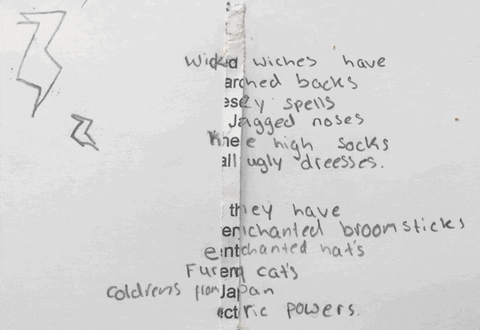 Wickid wiches have
arched backs
esezy spells
Jagged noses
Knee high socks
all ugly dreesses.
they have
enchanted broomsticks
entchanted hat's
Furerry cat's
coldrens from Japan
ectric powers.